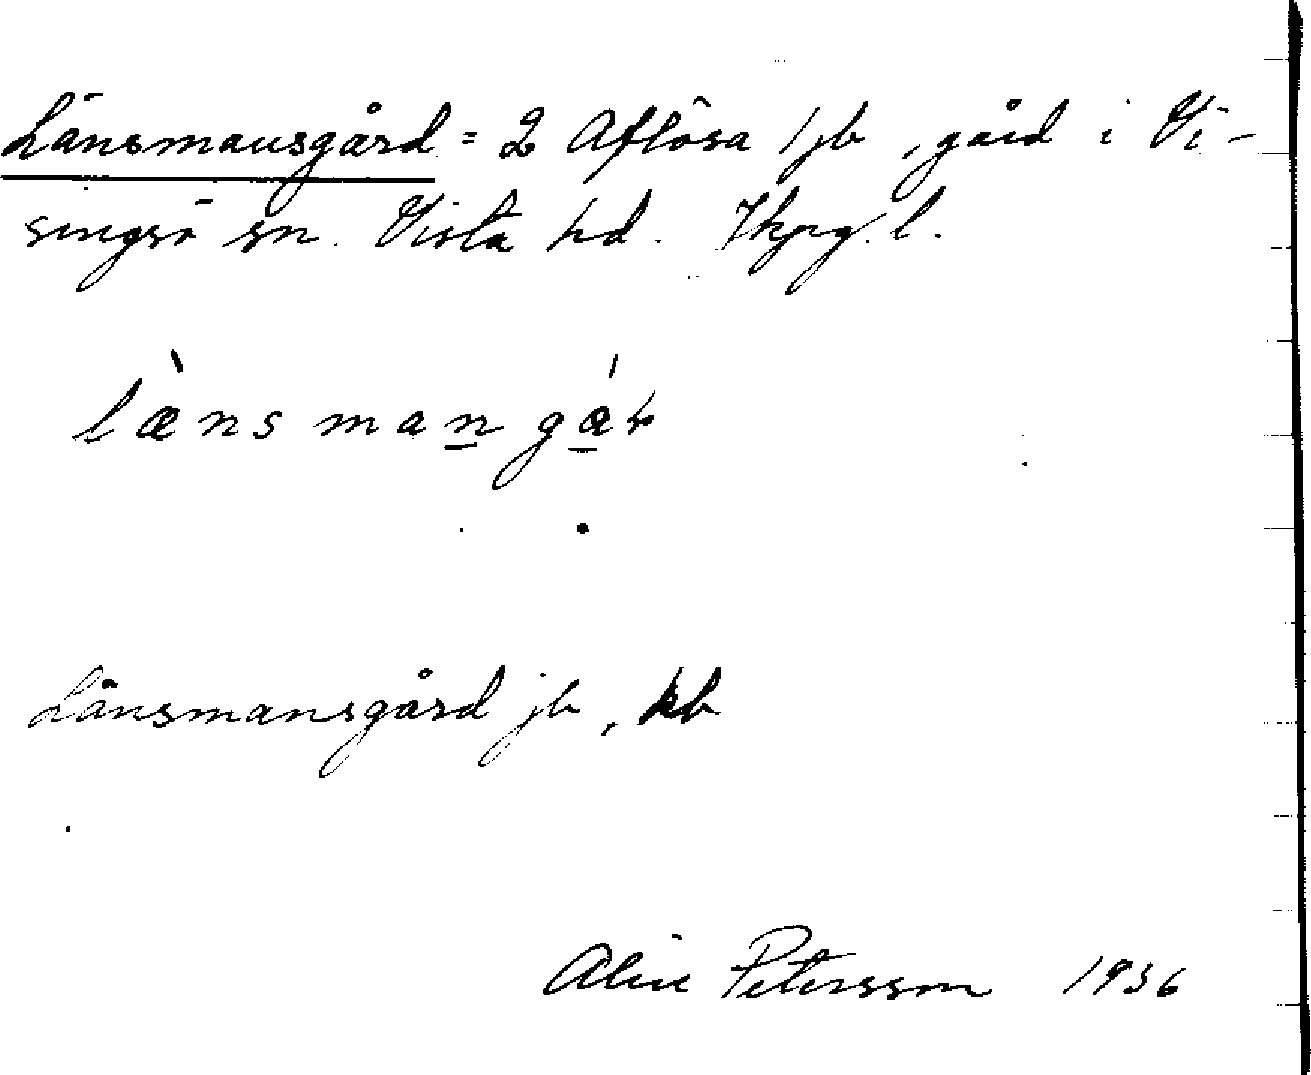 Länsmansgård = 2 Aflösa 1 jb, gård i Vi-
singsö sn. Vista hd. Jkpg. l.
læ̀nsmangár
Länsmansgård jb, kb
Alice Petersson 1936